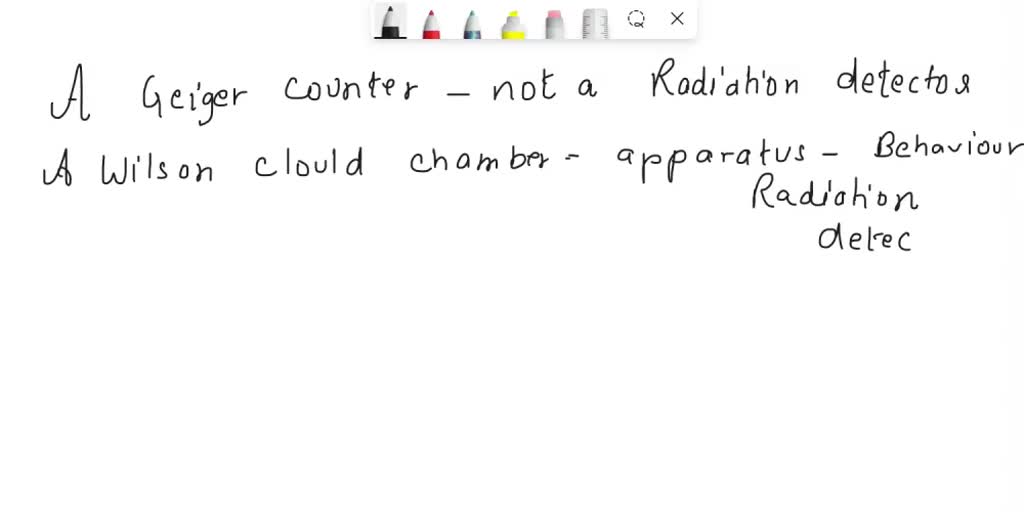 A Geiger counter - not a Radiation detector
A Wilson clould chamber - apparatus - Behaviour
Radiation
detec